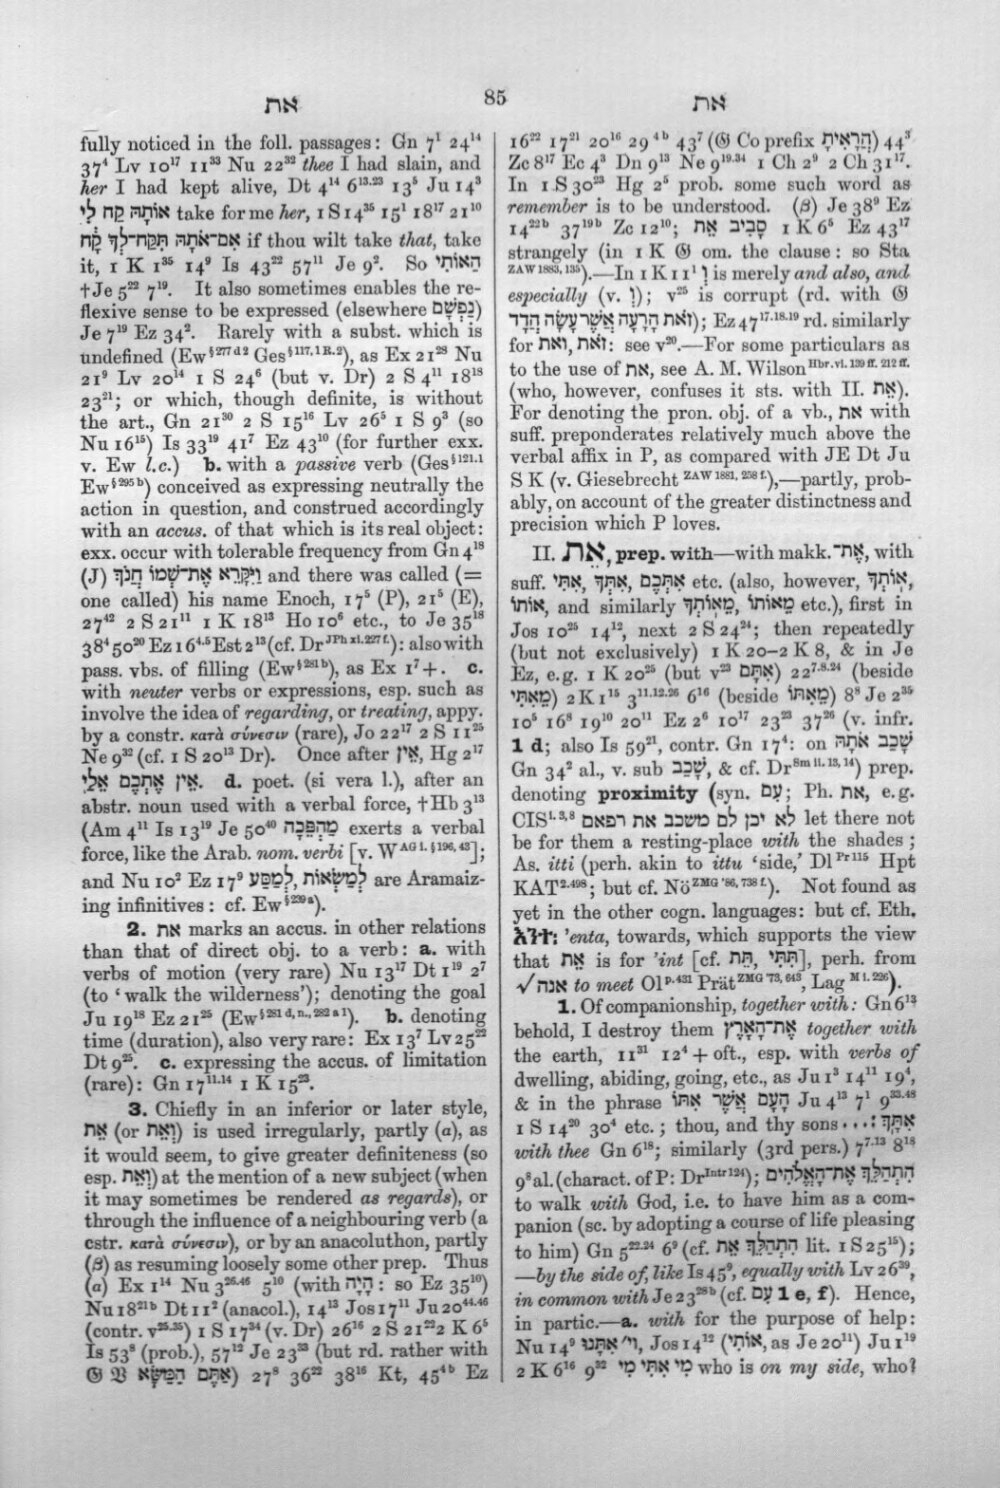 את 85 את
fully noticed in the foll. passages: Gn 7¹ 24¹⁴
37⁴ Lv 10¹⁷ 11³³ Nu 22³³ thee I had slain, and
her I had kept alive, Dt 4¹⁴ 6¹³·²³ 13⁵ Ju 14³
אוֹתָהּ קַח לִי take for me her, 1 S 14³⁵ 15¹ 18¹⁷ 21¹⁰
אִם־אֹתָהּ תִּקַּח־לְךָ קָח if thou wilt take that, take
it, 1 K 1³⁵ 14⁹ Is 43²² 57¹¹ Je 9². So הַאוֹתִי
†Je 5²² 7¹⁹. It also sometimes enables the re-
flexive sense to be expressed (elsewhere נַפְשָׁם)
Je 7¹⁹ Ez 34². Rarely with a subst. which is
undefined (Ew§²⁷⁷ᵈ² Ges§¹¹⁷,¹ᴿ·²), as Ex 21²⁸ Nu
21⁹ Lv 20¹⁴ 1 S 24⁶ (but v. Dr) 2 S 4¹¹ 18¹⁸
23²¹; or which, though definite, is without
the art., Gn 21³⁰ 2 S 15¹⁶ Lv 26⁵ 1 S 9³ (so
Nu 16¹⁵) Is 33¹⁹ 41⁷ Ez 43¹⁰ (for further exx.
v. Ew l.c.) b. with a passive verb (Ges§¹²¹·¹
Ew§²⁹⁵ᵇ) conceived as expressing neutrally the
action in question, and construed accordingly
with an accus. of that which is its real object:
exx. occur with tolerable frequency from Gn 4¹⁸
(J) וַיִּקָּרֵא אֶת־שְׁמוֹ חֲנֹךְ and there was called (=
one called) his name Enoch, 17⁵ (P), 21⁵ (E),
27⁴² 2 S 21¹¹ 1 K 18¹³ Ho 10⁶ etc., to Je 35¹⁸
38⁴ 50²⁰ Ez 16⁴·⁵ Est 2¹³ (cf. Dr JPh xi. 227 f.): also with
pass. vbs. of filling (Ew§²⁸¹ᵇ), as Ex 1⁷+. c.
with neuter verbs or expressions, esp. such as
involve the idea of regarding, or treating, appy.
by a constr. κατὰ σύνεσιν (rare), Jo 22¹⁷ 2 S 11²⁵
Ne 9³² (cf. 1 S 20¹³ Dr). Once after אֵין, Hg 2¹⁷
אֵין אֶתְכֶם אֵלַי. d. poet. (si vera l.), after an
abstr. noun used with a verbal force, †Hb 3¹³
(Am 4¹¹ Is 13¹⁹ Je 50⁴⁰ מַהְפֵּכָה exerts a verbal
force, like the Arab. nom. verbi [v. W AG i. § 196, 43];
and Nu 10² Ez 17⁹ לְמַשְׂאוֹת, לְמַסַּע are Aramaiz-
ing infinitives: cf. Ew§²³⁹ᵃ).
2. את marks an accus. in other relations
than that of direct obj. to a verb: a. with
verbs of motion (very rare) Nu 13¹⁷ Dt 1¹⁹ 2⁷
(to ‘walk the wilderness’); denoting the goal
Ju 19¹⁸ Ez 21²⁵ (Ew§²⁸¹ ᵈ, ⁿ·, ²⁸² ᵃ ¹). b. denoting
time (duration), also very rare: Ex 13⁷ Lv 25²²
Dt 9²⁵. c. expressing the accus. of limitation
(rare): Gn 17¹¹·¹⁴ 1 K 15²³.
3. Chiefly in an inferior or later style,
אֵת (or וְאֵת) is used irregularly, partly (α), as
it would seem, to give greater definiteness (so
esp. וְאֵת) at the mention of a new subject (when
it may sometimes be rendered as regards), or
through the influence of a neighbouring verb (a
cstr. κατὰ σύνεσιν), or by an anacoluthon, partly
(β) as resuming loosely some other prep. Thus
(α) Ex 1¹⁴ Nu 3²⁶·⁴⁶ 5¹⁰ (with הָיָה: so Ez 35¹⁰)
Nu 18²¹ᵇ Dt 11² (anacol.), 14¹³ Jos 17¹¹ Ju 20⁴⁴·⁴⁶
(contr. v²⁵·³⁵) 1 S 17³⁴ (v. Dr) 26¹⁶ 2 S 21²² 2 K 6⁵
Is 53⁸ (prob.), 57¹² Je 23³³ (but rd. rather with
𝔊 𝔙 אַתֶּם הַמַּשָּׂא) 27⁸ 36²² 38¹⁶ Kt, 45⁴ᵇ Ez
16²² 17²¹ 20¹⁶ 29⁴ᵇ 43⁷ (𝔊 Co prefix הֲרָאִיתָ) 44³
Zc 8¹⁷ Ec 4³ Dn 9¹³ Ne 9¹⁹·³⁴ 1 Ch 2⁹ 2 Ch 31¹⁷.
In 1 S 30²³ Hg 2⁵ prob. some such word as
remember is to be understood. (β) Je 38⁹ Ez
14²²ᵇ 37¹⁹ᵇ Zc 12¹⁰; סָבִיב אֵת 1 K 6⁵ Ez 43¹⁷
strangely (in 1 K 𝔊 om. the clause: so Sta
ZAW 1883, 135).—In 1 K 11¹ וְ is merely and also, and
especially (v. וְ); v²⁵ is corrupt (rd. with 𝔊
זֹאת הָרָעָה אֲשֶׁר עָשָׂה הֲדָד); Ez 47¹⁷·¹⁸·¹⁹ rd. similarly
for זֹאת, ואת: see v²⁰.—For some particulars as
to the use of את, see A. M. Wilson Hbr. vi. 139 ff. 212 ff.
(who, however, confuses it sts. with II. אֵת).
For denoting the pron. obj. of a vb., את with
suff. preponderates relatively much above the
verbal affix in P, as compared with JE Dt Ju
S K (v. Giesebrecht ZAW 1881, 258 f.),—partly, prob-
ably, on account of the greater distinctness and
precision which P loves.
II. אֵת, prep. with—with makk. אֶת־, with
suff. אִתִּי, אִתְּךָ, אִתְּכֶם etc. (also, however, אוֹתְךָ,
אוֹתוֹ, and similarly מֵאוֹתוֹ, מֵאוֹתְךָ etc.), first in
Jos 10²⁵ 14¹², next 2 S 24²⁴; then repeatedly
(but not exclusively) 1 K 20–2 K 8, & in Je
Ez, e.g. 1 K 20²⁵ (but v²³ אִתָּם) 22⁷·⁸·²⁴ (beside
מֵאִתִּי) 2 K 1¹⁵ 3¹¹·¹²·²⁶ 6¹⁶ (beside מֵאִתּוֹ) 8⁸ Je 2³⁵
10⁵ 16⁸ 19¹⁰ 20¹¹ Ez 2⁶ 10¹⁷ 23²³ 37²⁶ (v. infr.
1 d; also Is 59²¹, contr. Gn 17⁴: on שָׁכַב אֹתָהּ
Gn 34² al., v. sub שָׁכַב, & cf. Dr Sm ii. 13, 14) prep.
denoting proximity (syn. עִם; Ph. את, e.g.
CIS i. 3, 8 לא יכן לם משכב את רפאם let there not
be for them a resting-place with the shades;
As. itti (perh. akin to ittu ‘side,’ Dl Pr 115 Hpt
KAT 2. 498; but cf. Nö ZMG ’86, 738 f.). Not found as
yet in the other cogn. languages: but cf. Eth.
እንተ፡ ’enta, towards, which supports the view
that אֵת is for ’int [cf. תֵּת, תִּתִּי], perh. from
√אנה to meet Ol p. 431 Prät ZMG ’73, 643, Lag M i. 226).
1. Of companionship, together with: Gn 6¹³
behold, I destroy them אֶת־הָאָרֶץ together with
the earth, 11³¹ 12⁴ + oft., esp. with verbs of
dwelling, abiding, going, etc., as Ju 1³ 14¹¹ 19⁴,
& in the phrase הָעָם אֲשֶׁר אִתּוֹ Ju 4¹³ 7¹ 9³³·⁴⁸
1 S 14²⁰ 30⁴ etc.; thou, and thy sons · · · אִתָּךְ:
with thee Gn 6¹⁸; similarly (3rd pers.) 7⁷·¹³ 8¹⁸
9⁸ al. (charact. of P: Dr Intr 124); הִתְהַלֵּךְ אֶת־הָאֱלֹהִים
to walk with God, i.e. to have him as a com-
panion (sc. by adopting a course of life pleasing
to him) Gn 5²²·²⁴ 6⁹ (cf. הִתְהַלֵּךְ אֵת lit. 1 S 25¹⁵);
—by the side of, like Is 45⁹, equally with Lv 26³⁹,
in common with Je 23²⁸ᵇ (cf. עִם 1 e, f). Hence,
in partic.—a. with for the purpose of help:
Nu 14⁹ וי׳ אִתָּנוּ, Jos 14¹² (אוֹתִי, as Je 20¹¹) Ju 1¹⁹
2 K 6¹⁶ 9³² מִי אִתִּי מִי who is on my side, who?